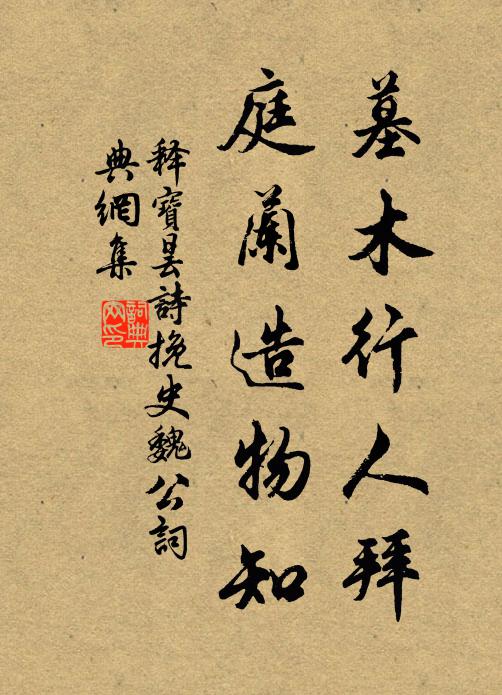 墓木行人拜
庭蘭造物知
释寶昙詩挽史魏公詞
典網集
詞典
网印